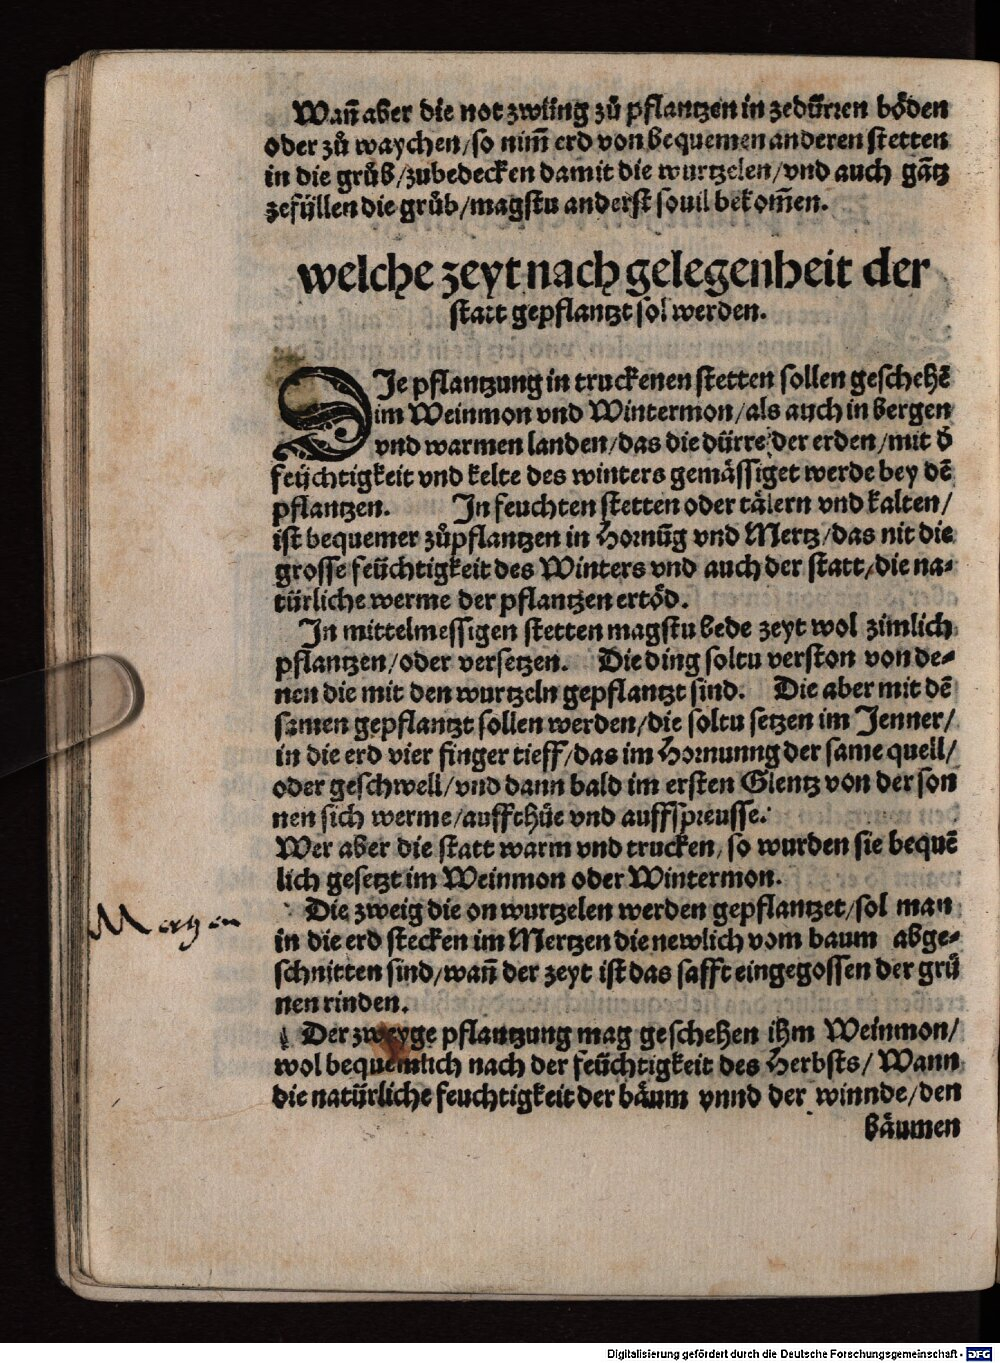 Wañ aber die not zwüng zů pflantzen in zedürren böden
oder zů waychen/so nim̃ erd von bequemen anderen stetten
in die grůb/zubedecken damit die wurtzelen/vnd auch gãtz
zefüllen die grůb/magstu anderst souil bekom̃en.
welche zeyt nach gelegenheit der
statt gepflantzt sol werden.
DJe pflantzung in truckenen stetten sollen geschehẽ
im Weinmon vnd Wintermon/als auch in bergen
vnd warmen landen/das die dürre der erden/mit d̕
feüchtigkeit vnd kelte des winters gemässiget werde bey dẽ
pflantzen. In feuchten stetten oder tälern vnd kalten/
ist bequemer zůpflantzen in Hornũg vnd Mertz/das nit die
grosse feüchtigkeit des Winters vnd auch der statt/die na⸗
türliche werme der pflantzen ertöd.
In mittelmessigen stetten magstu bede zeyt wol zimlich
pflantzen/oder versetzen. Die ding soltu verston von de⸗
nen die mit den wurtzeln gepflantzt sind. Die aber mit dẽ
samen gepflantzt sollen werden/die soltu setzen im Jenner/
in die erd vier finger tieff/das im Hornunng der same quell/
oder geschwell/vnd dann bald im ersten Glentz von der son
nen sich werme/auffthüe vnd auffspreusse.
Wer aber die statt warm vnd trucken/so wurden sie bequẽ
lich gesetzt im Weinmon oder Wintermon.
Die zweig die on wurtzelen werden gepflantzet/sol man
Mertzen
in die erd stecken im Mertzen die newlich vom baum abge⸗
schnitten sind/wañ der zeyt ist das safft eingegossen der grü
nen rinden.
Der zweyge pflantzung mag geschehen ihm Weinmon/
wol bequemlich nach der feüchtigkeit des Herbsts/Wann
die natürliche feuchtigkeit der bäum vnnd der winnde/den
bäumen
Digitalisierung gefördert durch die Deutsche Forschungsgemeinschaft - DFG